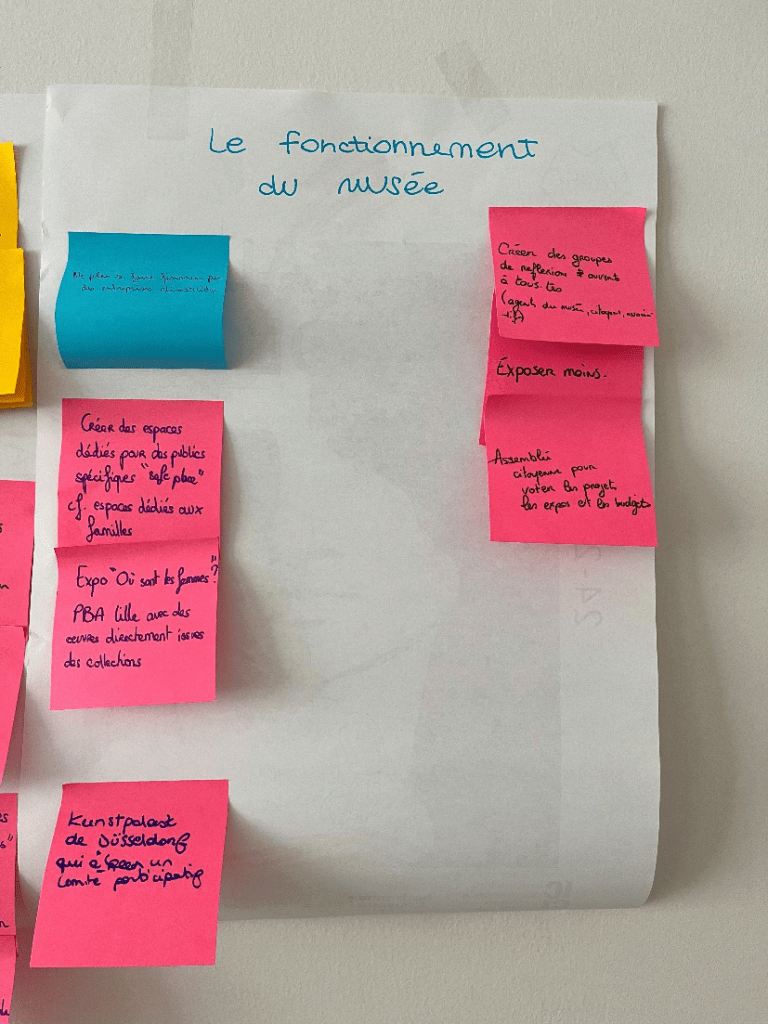 Le fonctionnement
du musée
Ne plus se faire financer par
des entreprises
Créer des espaces
dédiés pour des publics
spécifiques "safe place"
cf. espaces dédiés aux
familles
Expo "Où sont les femmes"?
PBA Lille avec des
œuvres directement issues
des collections
Kunstpalast
de Düsseldorf
qui a créer un
comité participatif
Créer des groupes
de réflexion ouvert
à tous.tes
(agents du musée, citoyens,
Exposer moins.
Assemblée
citoyenne pour
voter les projets,
les expos et les budgets